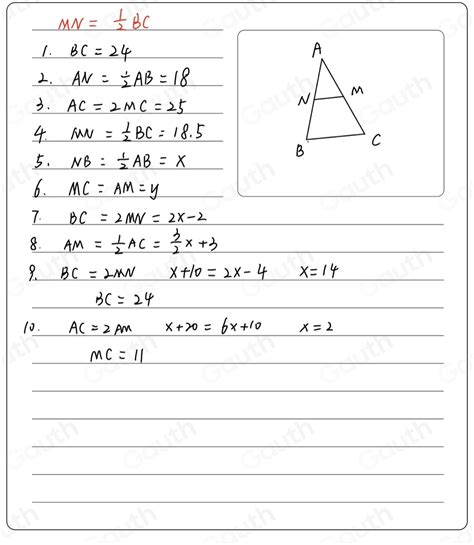 MN = 1/2 BC
1. BC = 24
2. AN = 1/2 AB = 18
3. AC = 2MC = 25
4. MN = 1/2 BC = 18.5
5. NB = 1/2 AB = x
6. MC = AM = y
7. BC = 2MN = 2x-2
8. AM = 1/2 AC = 3/2 x + 3
9. BC = 2MN x+10 = 2x-4 x=14
BC = 24
10. AC = 2AM x+20 = 6x+10 x=2
MC = 11
A
N M
B C
Gauth